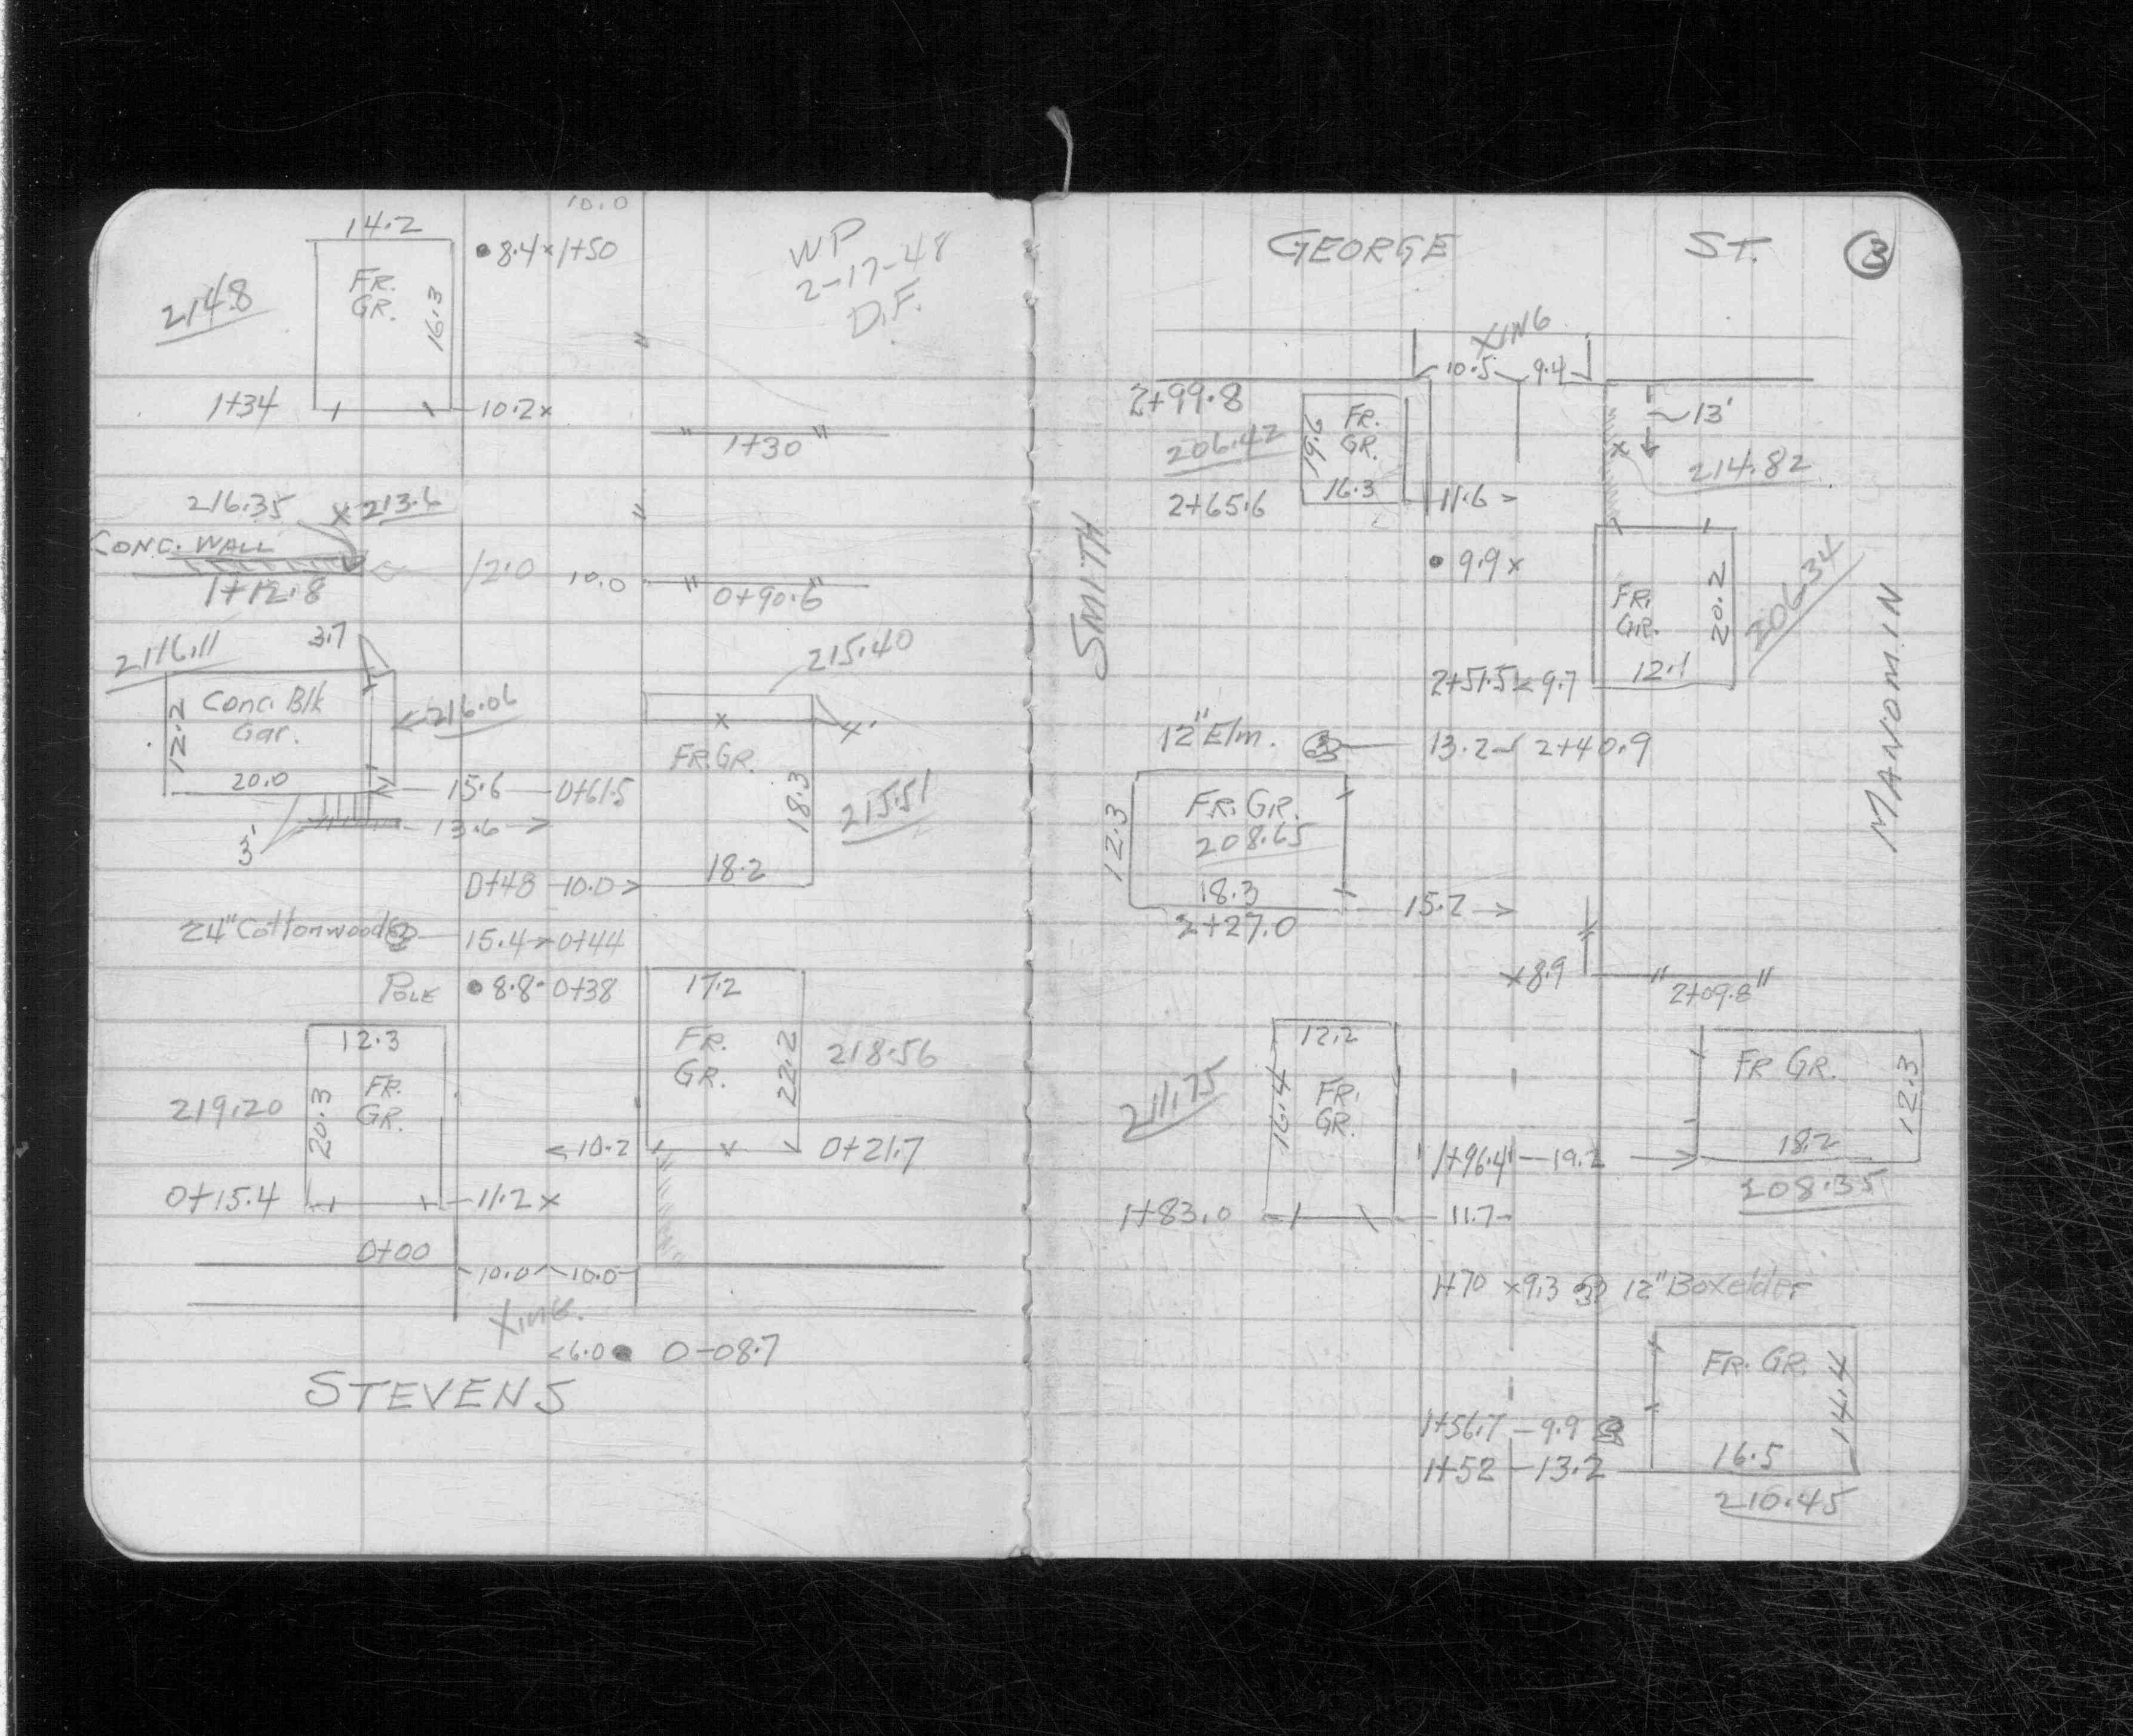 10.0
14.2
8.4 x 1+50
WP
2-17-48
D.F.
FR.
GR.
16.3
214.8
1+34
10.2 x
" 1+30 "
216.35
x 213.6
CONC. WALL
12.0
10.0
" 0+90.6 "
1+12.8
216.11
3.7
215.40
Conc. Blk
Gar.
12.2
216.06
x
4'
FR. GR.
20.0
15.6
0+61.5
18.3
215.51
13.6
3'
18.2
0+48
10.0
24" Cottonwood
15.4
0+44
POLE
8.8
0+38
17.2
12.3
FR.
GR.
22.2
218.56
219.20
20.3
FR.
GR.
10.2
0+21.7
0+15.4
11.2 x
0+00
10.0
10.0
XING.
6.0
0-08.7
STEVENS
GEORGE ST. 3
XING
10.5
9.4
2+99.8
FR.
GR.
19.6
13'
206.42
x
214.82
16.3
2+65.6
11.6
SMITH
9.9 x
FR.
GR.
20.2
206.34
MANOMIN
12.1
2+51.5
9.7
12" Elm.
13.2
2+40.9
FR. GR.
208.65
12.3
18.3
15.2
2+27.0
x 8.9
" 2+09.8 "
12.2
FR GR.
12.3
211.75
16.4
FR.
GR.
18.2
1+96.4
19.2
208.35
1+83.0
11.7
1+70 x 9.3 12" Boxelder
FR. GR.
14.4
1+56.7 - 9.9
16.5
1+52 - 13.2
210.45